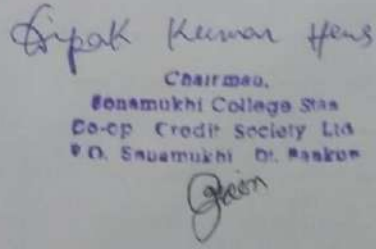 Dipak Kumar Hens
Chairman,
Sonamukhi College Staff
Co-op Credit Society Ltd
P.O. Sonamukhi Dt. Bankura